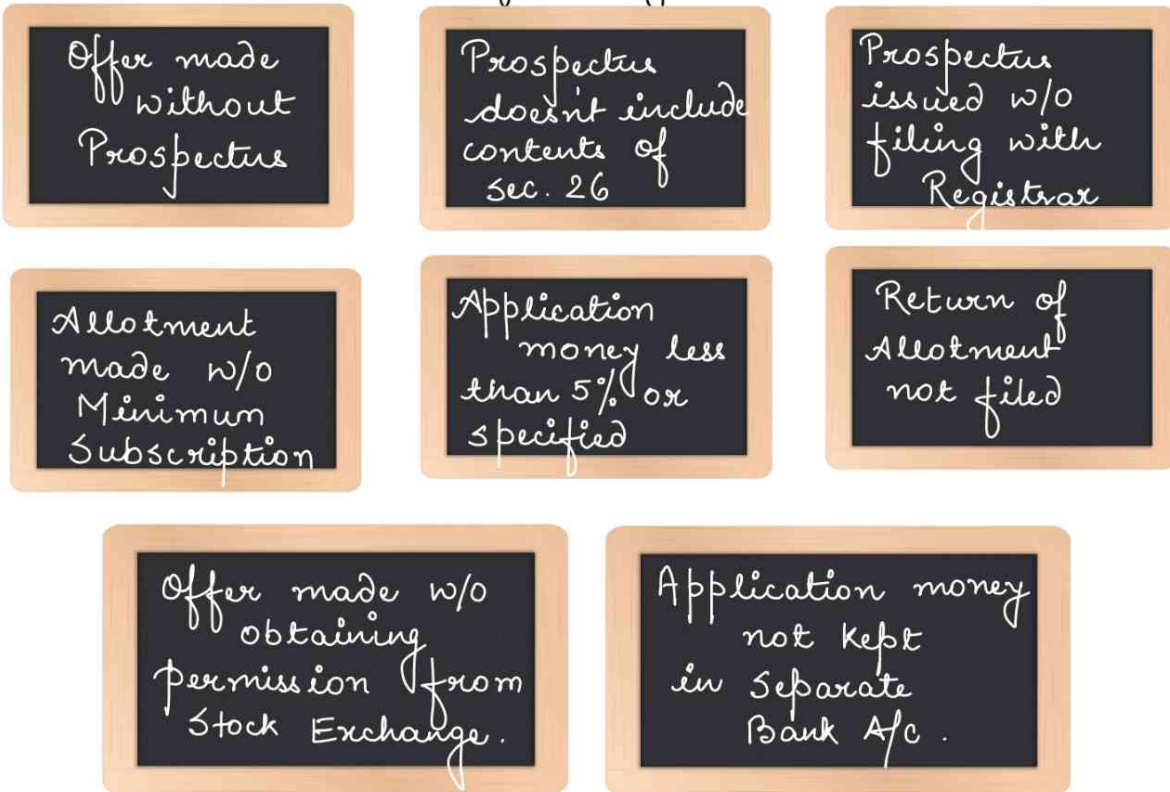 Offer made
without
Prospectus
Prospectus
doesn't include
contents of
sec. 26
Prospectus
issued w/o
filing with
Registrar
Allotment
made w/o
Minimum
Subscription
Application
money less
than 5% or
specified
Return of
Allotment
not filed
Offer made w/o
obtaining
permission from
Stock Exchange.
Application money
not kept
in Separate
Bank A/c.